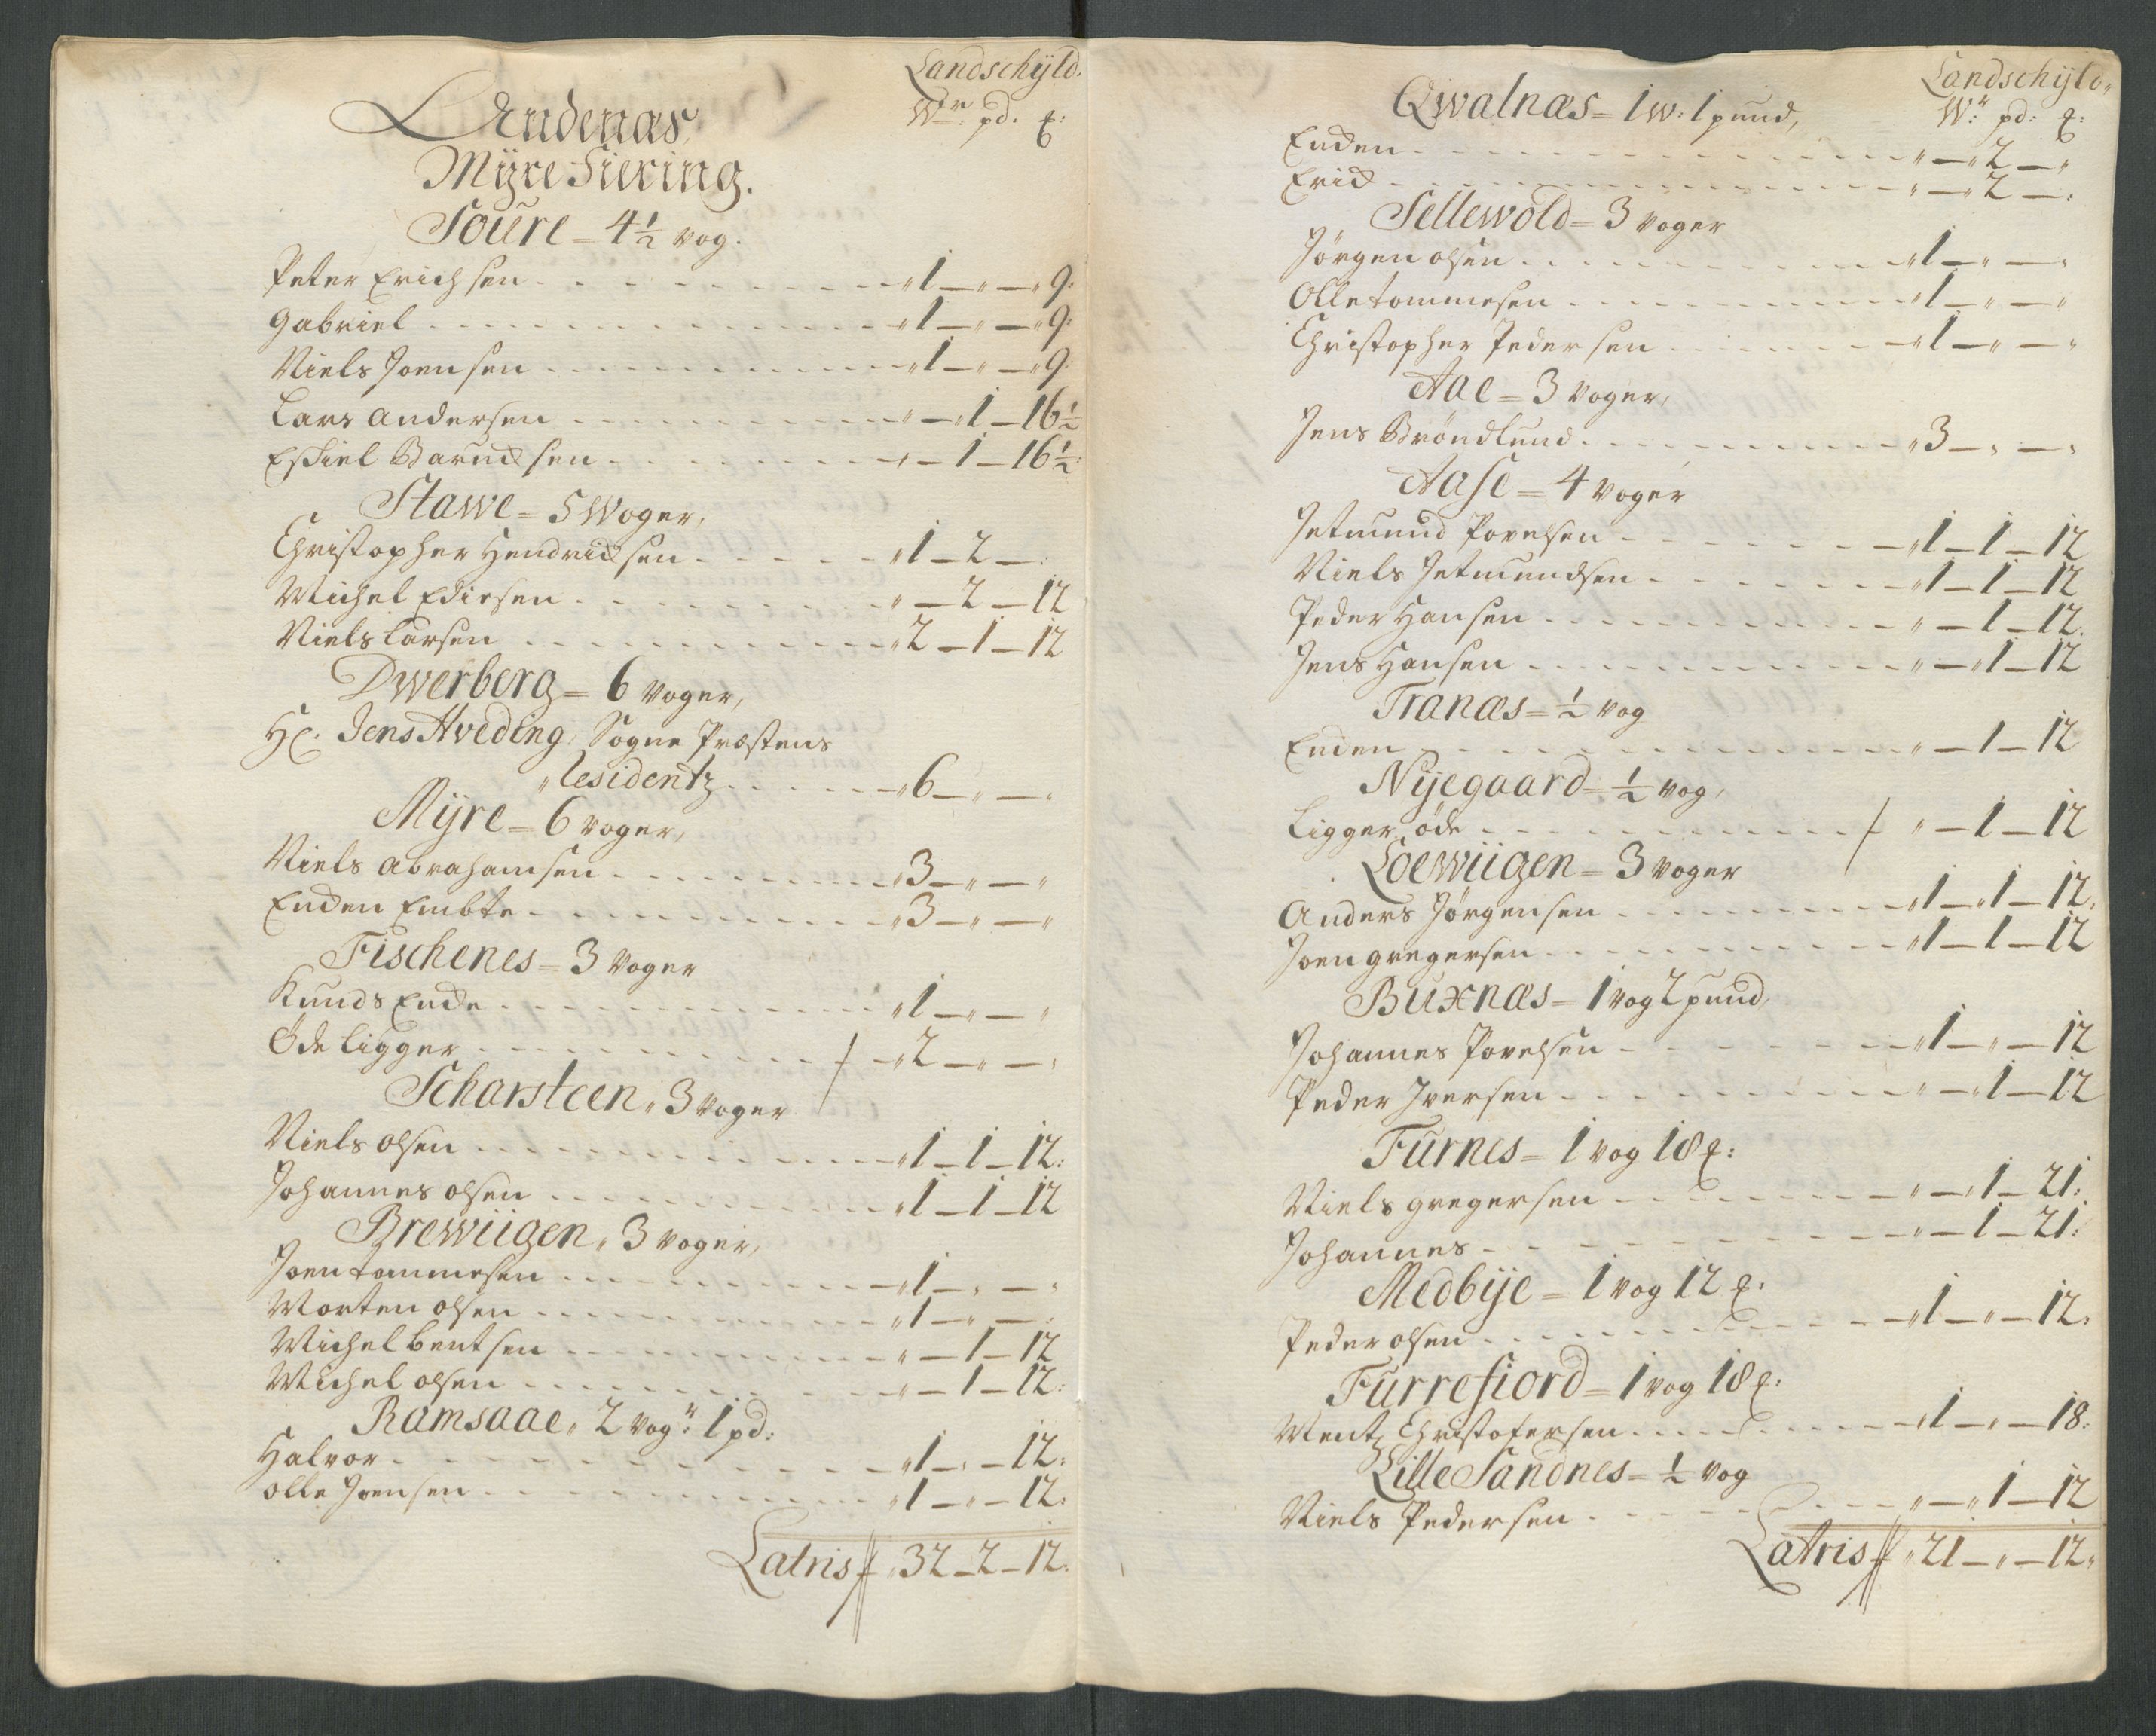 Landschÿld.
Andenæs
Wr: pd. ℔:
Mÿre Fiering.
Soure = 4 1/2 vog.
Peter Erichsen - - - " 1 — " — " 9:
Gabriel - - - " 1 — " — " 9:
Niels Joensen - - - " 1 — " — " 9:
Lars Andersen - - - " — " 1 — 16 1/2
Eskiel Barudsen - - - " — 1 — 16 1/2:
Stawe = 5 Woger,
Christopher Hendricksen - - - " 1 — 2 — :
Michel Edissen - - - " — 2 — 12
Niels Larsen - - - " 2 — 1 — 12
Dwerberg = 6 voger,
Hr. Jens Hveding, Sogne Præstens
Residentz - - - " 6 — " — "
Mÿre = 6 voger,
Niels Abrahamsen - - - " 3 — " — "
Enden Embte - - - " 3 — " — "
Fischenes = 3 voger
Knuds Encke - - - " 1 — " — "
Öde ligger - - - ƒ — " 2 — " — "
Scharsteen, 3 voger
Niels Olsen - - - " 1 — 1 — 12:
Johannes Olsen - - - " 1 — 1 — 12
Brewiigen, 3 voger,
Joen Tommesen - - - " 1 — " — "
Morten Olsen - - - " 1 — " — :
Michel Bentsen - - - " — 1 — 12
Michel Olsen - - - " — 1 — 12:
Ramsaae, 2 vogr: 1 pd:
Halvor - - - " 1 — " — 12:
Olle Joensen - - - " 1 — " — 12:
Latris ƒ 32 — 2 — 12:
Landschÿld,
Qwalnæs = 1 w: 1 pund,
Wr: pd: ℔:
Enden - - - " — " 2 — "
Erick - - - " — " 2 — :
Sellewold = 3 voger
Jørgen Olsen - - - " 1 — " — "
Olle Tommesen - - - " 1 — " — "
Christopher Pedersen - - - " 1 — " — "
Aae = 3 voger,
Jens Brøndlund - - - " 3 — " — "
Aase = 4 voger
Jetmund Povelsen - - - " 1 — 1 — 12
Niels Jetmundsen - - - " 1 — 1 — 12
Peder Hansen - - - " — 1 — 12.
Jens Hansen - - - " — " 1 — 12
Tranæs = 1/2 vog
Enden - - - " — 1 — 12
Nÿegaard = 1/2 vog,
Ligger øde - - - ƒ " — 1 — 12
Loewiigen = 3 voger
Anders Jørgensen - - - " 1 — " 1 — 12,
Joen Gregersen - - - " 1 — 1 — 12
Buxnæs = 1 vog 2 pund,
Johannes Povelsen - - - " 1 — " — 12
Peder Iversen - - - " — " 1 — 12
Furnes = 1 vog 18 ℔:
Niels Gregersen - - - " — " 1 — 21:
Johannes - - - " — 1 — 21:
Medbÿe = 1 vog 12 ℔:
Peder Olsen - - - " 1 — " — 12:
Furrefiord = 1 vog 18 ℔:
Mentz Christofersen - - - " 1 — " — 18:
Lille Sandnes = 1/2 vog
Niels Pedersen - - - " — " 1 — 12
Latris ƒ " 21 — " — 12,